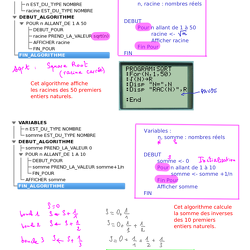 n EST_DU_TYPE NOMBRE
racine EST_DU_TYPE NOMBRE
DEBUT_ALGORITHME
POUR n ALLANT_DE 1 A 50
DEBUT_POUR
racine PREND_LA_VALEUR sqrt(n)
AFFICHER racine
FIN_POUR
FIN_ALGORITHME
n, racine : nombres réels
DEBUT
Pour n allant de 1 à 50
racine <- √n
Afficher racine
Fin Pour
FIN
sqrt : Square Root
(racine carrée)
Cet algorithme affiche
les racines des 50 premiers
entiers naturels.
PROGRAM:SORT
:For(N,1,50)
:√(N)→R
:Disp "N=",N
:Disp "RAC(N)",R
:End
VARIABLES
n EST_DU_TYPE NOMBRE
somme EST_DU_TYPE NOMBRE
DEBUT_ALGORITHME
somme PREND_LA_VALEUR 0
POUR n ALLANT_DE 1 A 10
DEBUT_POUR
somme PREND_LA_VALEUR somme+1/n
FIN_POUR
AFFICHER somme
FIN_ALGORITHME
Variables :
n, somme : nombres réels
DEBUT
somme <- 0
Initialisation
Pour n allant de 1 à 10
somme <- somme + 1/n
Fin Pour
Afficher somme
FIN
S=0
Cet algorithme calcul
la somme des inverses
des 10 premiers
entiers naturels.